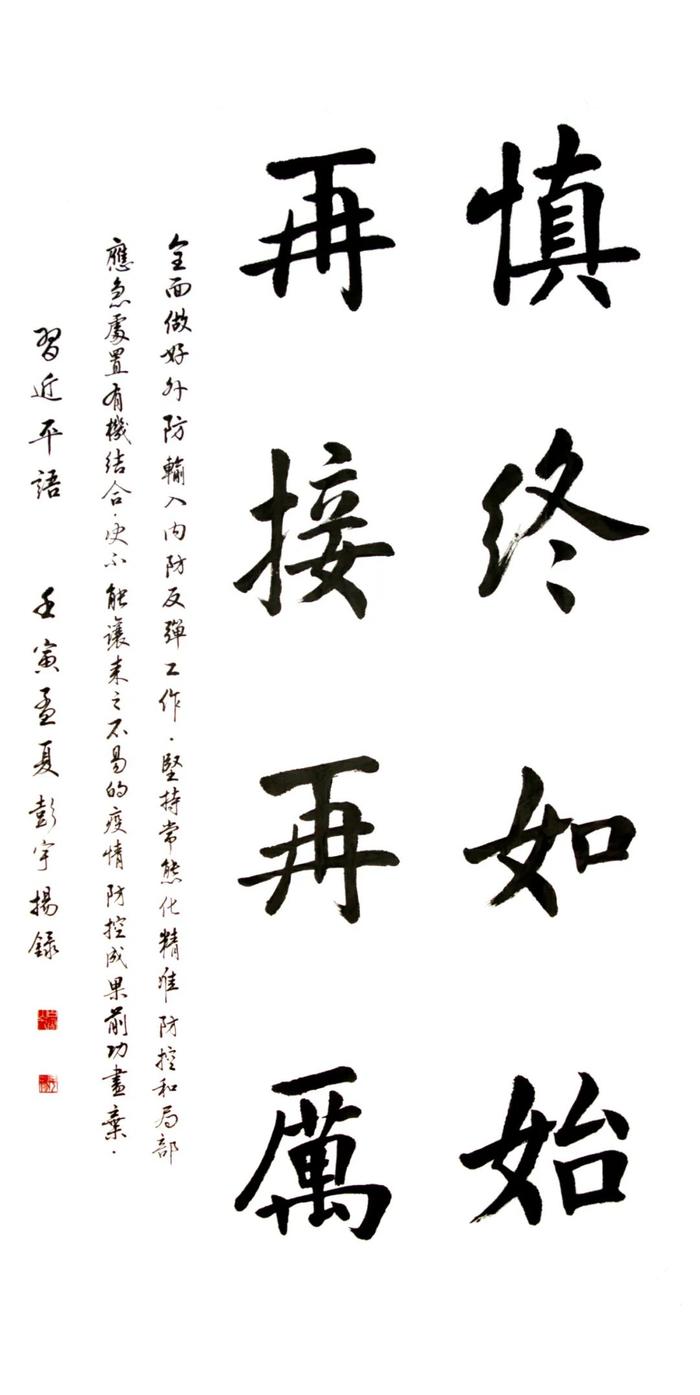 慎终如始
再接再厲
全面做好外防輸入内防反彈工作.堅持常態化精准防控和局部
應急處置有機結合.决不能讓来之不易的疫情防控成果前功盡棄.
習近平語 壬寅孟夏彭宇揚録